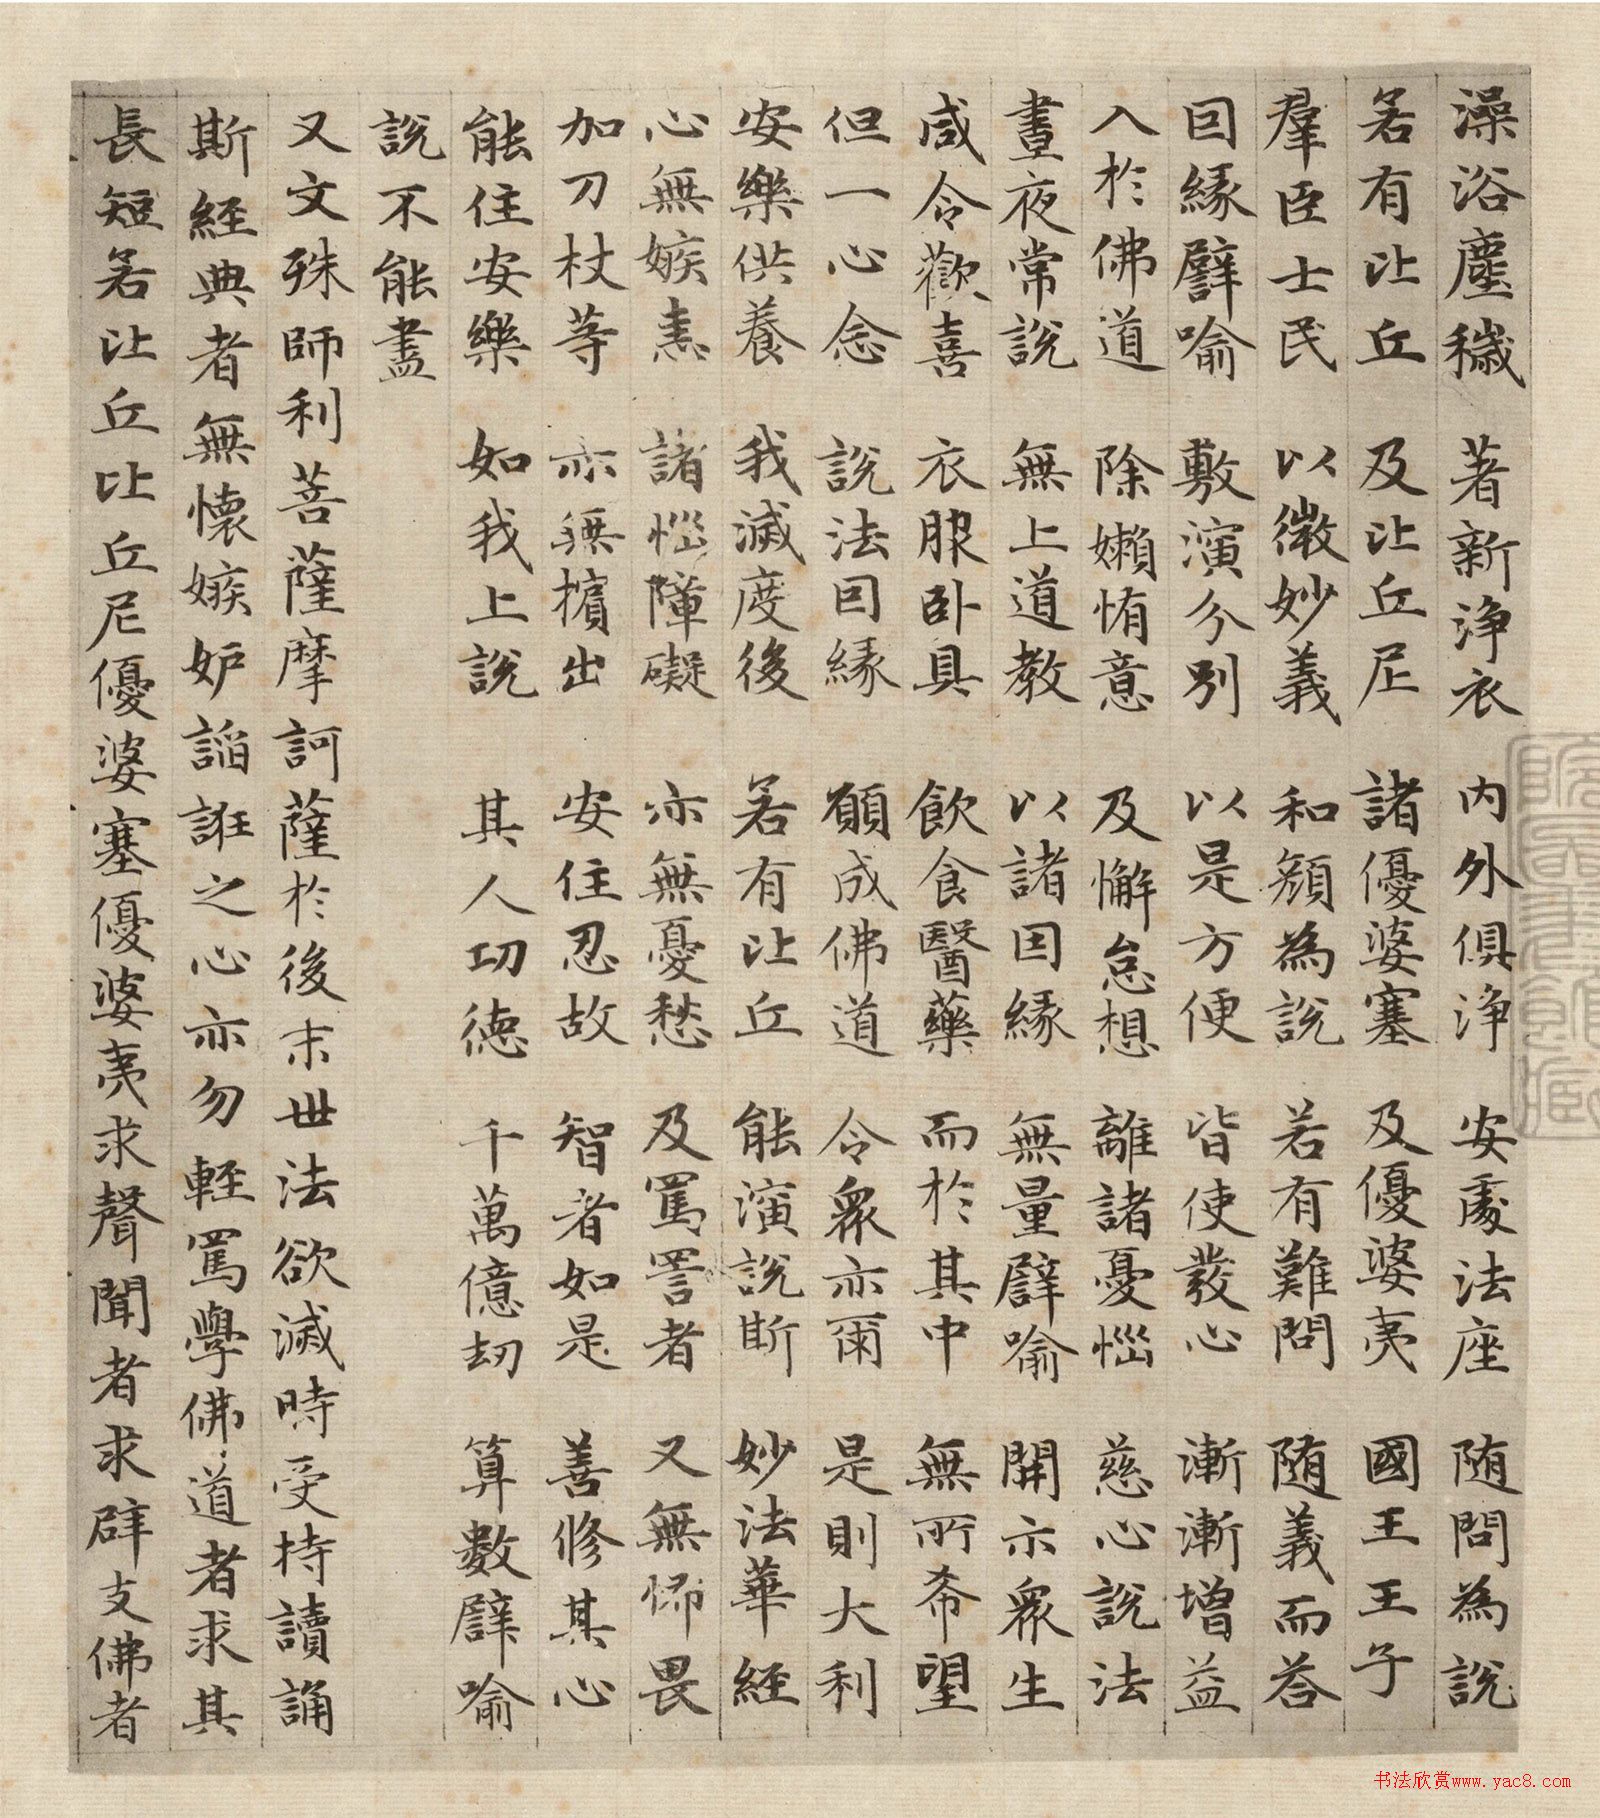 澡浴塵穢 著新淨衣 內外俱淨 安處法座 隨問為說
若有比丘 及比丘尼 諸優婆塞 及優婆夷 國王王子
羣臣士民 以微妙義 和顏為說 若有難問 隨義而答
因緣譬喻 敷演分別 以是方便 皆使發心 漸漸增益
入於佛道 除嬾惰意 及懈怠想 離諸憂惱 慈心說法
晝夜常說 無上道教 以諸因緣 無量譬喻 開示眾生
咸令歡喜 衣服臥具 飲食醫藥 而於其中 無所希望
但一心念 說法因緣 願成佛道 令眾亦爾 是則大利
安樂供養 我滅度後 若有比丘 能演說斯 妙法華經
心無嫉恚 諸惱障礙 亦無憂愁 及罵詈者 又無怖畏
加刀杖等 亦無擯出 安住忍故 智者如是 善修其心
能住安樂 如我上說 其人功德 千萬億劫 算數譬喻
說不能盡
又文殊師利菩薩摩訶薩於後末世法欲滅時受持讀誦
斯經典者無懷嫉妒諂誑之心亦勿輕罵學佛道者求其
長短若比丘比丘尼優婆塞優婆夷求聲聞者求辟支佛者
书法欣赏www.yac8.com